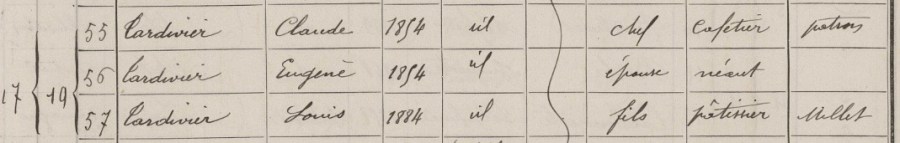 55 Tardivier Claude 1854 id chef cafetier patron
56 Tardivier Eugène 1854 id épouse néant
17 19 57 Tardivier Louis 1884 id fils pâtissier Millet